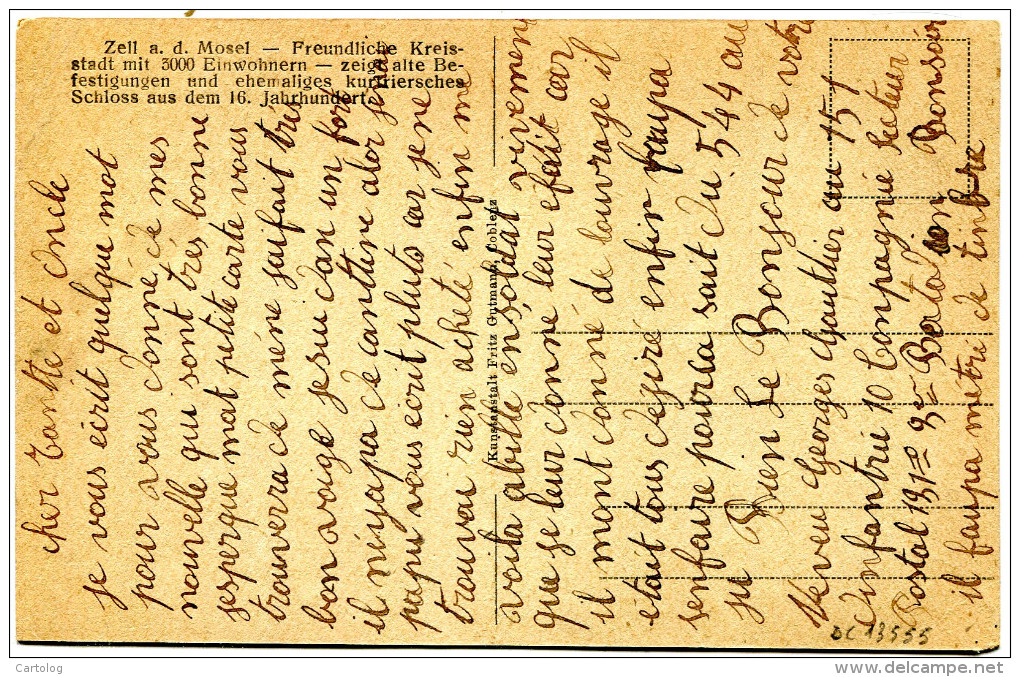 Zell a. d. Mosel — Freundliche Kreis-
stadt mit 3000 Einwohnern — zeigt alte Be-
festigungen und ehemaliges kurtriersches
Schloss aus dem 16. Jahrhundert.
Kunstanstalt Fritz Gutmann, Coblenz
cher Tante et Oncle
je vous écrit quelque mot
pour vous donné de mes
nouvelle qui sont très bonne
jesperque mat petite carte vous
trouverra de méne jaifait très
bon voige jesui dan un fort
il niyapa de canttine alor
papu vous écrit pluto car jene
trouvai rien acheté enfin me
voila abillé ensoldat vivement
que je leur donne leur éfait car
il mont donné de louvrage il
était tous déjiré enfin faupa
senfaire pourca sait du 5/44 au
ju Bien Le Bonjour de votre
Neveu Georges Gauthier au 151
Infantrie 10 Compagnie Secteur
Postal 131 3 Batallon Bonsoir
il faupa métré de tinbre
DC 13555
Cartolog
www.delcampe.net